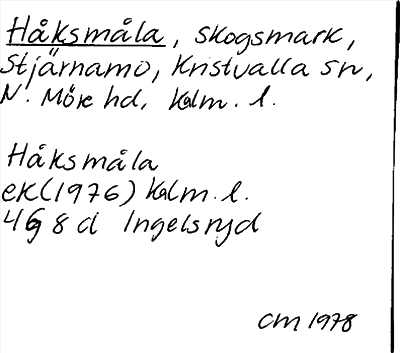 Håksmåla, skogsmark,
Stjärnamo, Kristvalla sn,
N. Möre hd, Kalm. l.
Håksmåla
ek (1976) Kalm. l.
4G 8d Ingelsryd
CM 1978